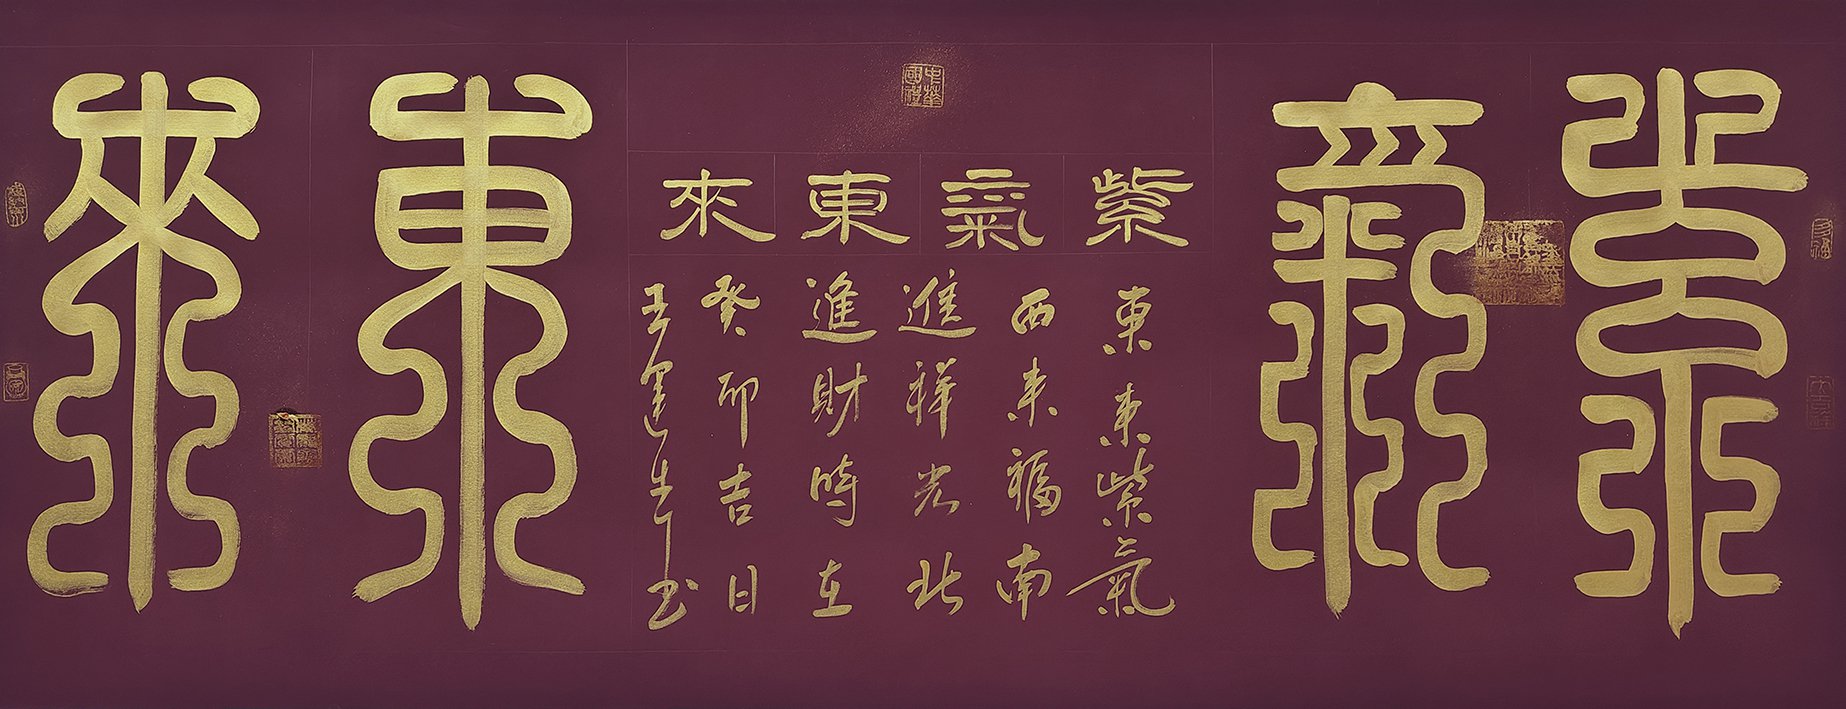 紫氣東來
中華國禮
紫氣東來
東來紫氣
西來福南
進祥光北
進財時在
癸卯吉日
書